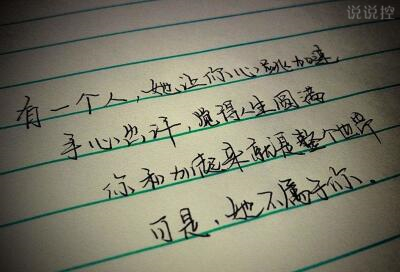 说说控
有一个人,她让你心跳加速,
手心出汗,觉得人生圆满
你和加起来就是整个世界
可是,她不属于你.